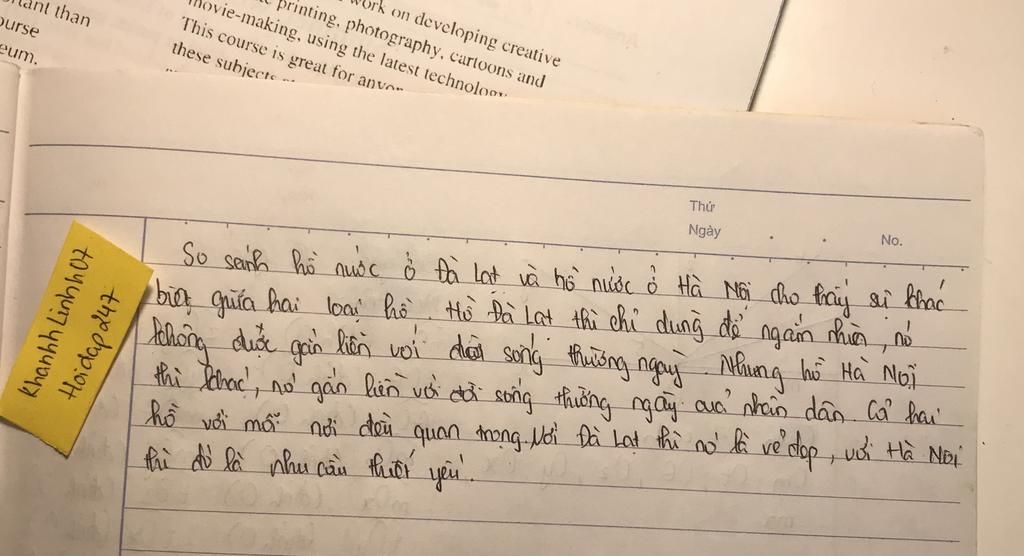 rtant than
ourse
eum.
work on developing creative
printing, photography, cartoons and
movie-making, using the latest technology
This course is great for anyon
these subjects
Thứ
Ngày
No.
KhanhhLinhhh07
Hoidap247
So sánh hồ nước ở Đà Lạt và hồ nước ở Hà Nội cho thấy sự khác
biệt giữa hai loại hồ. Hồ Đà Lạt thì chỉ dùng để ngắm nhìn, nó
không được gắn liền với đời sống thường ngày. Nhưng hồ Hà Nội
thì khác, nó gắn liền với đời sống thường ngày của nhân dân. Cả hai
hồ với mỗi nơi đều quan trọng. Với Đà Lạt thì nó là vẻ đẹp, với Hà Nội
thì đó là nhu cầu thiết yếu.